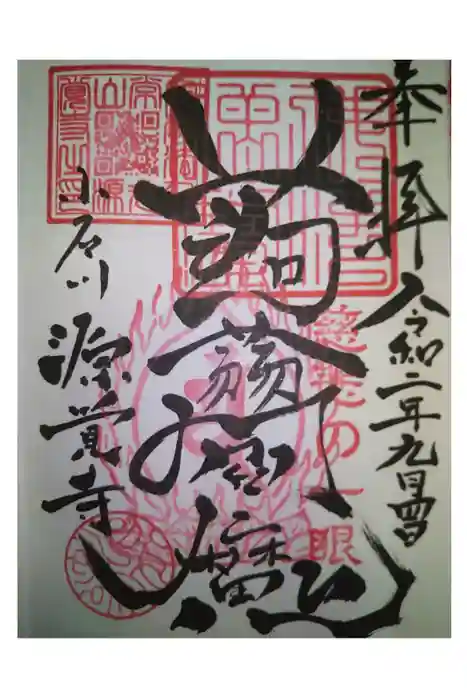 奉拝 令和二年九月四日
慈悲の一眼
蒟蒻閻魔
小石川
源覚寺